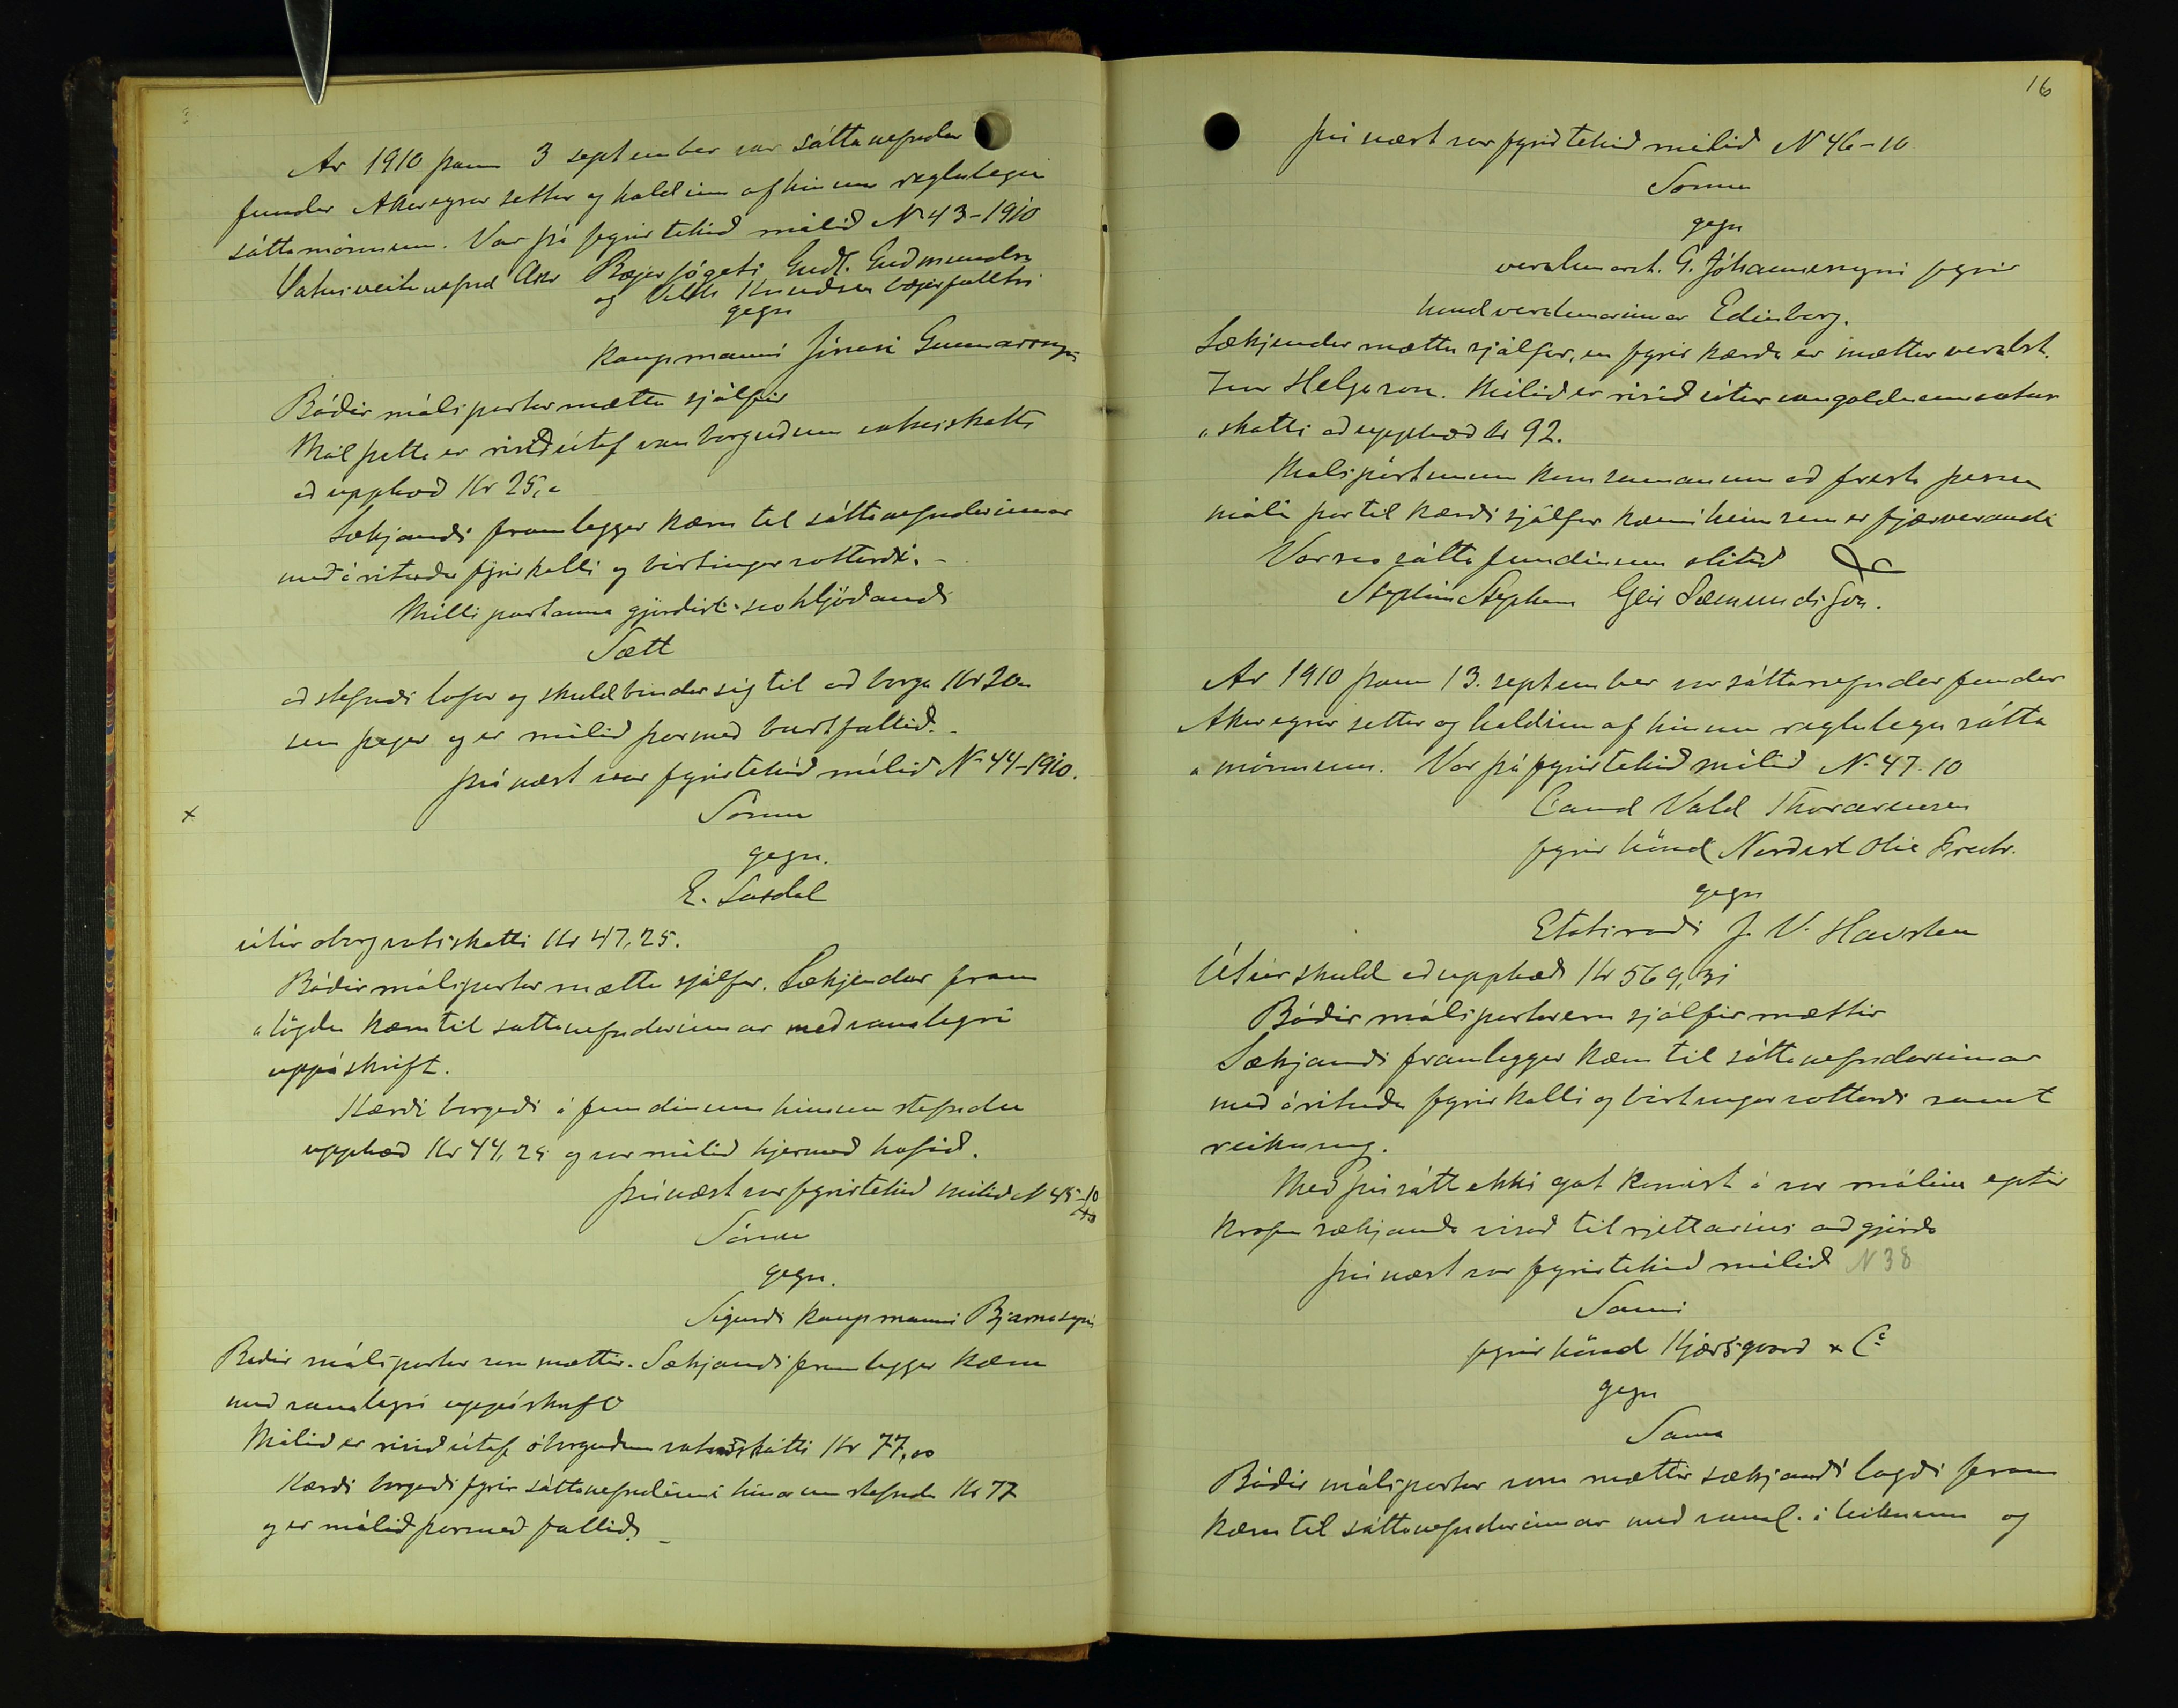 Ár 1910 þann 3 september var sáttanefndar
fundur Akureyrar settur og haldinn af hinum reglulegu
sáttamönnum. Var þá fyrirtekið málið N 43-1910
Vatnsveitunefnd Akr Bæjarfógeti Guðl. Guðmundss
og Knudsen bæjarfulltrúi
gegn
kaupmanni Gunnarssyni
Báðir málspartar mættu sjálfir
Mál þetta er risið útaf van borguðum vatnsskatti
að upphæð Kr 25,
Sækjandi framlegger kæru til sáttanefndarinnar
með árituðu fyrirkalli og birtingarvottorði. -
Milli partanna gjörðist svohljóðandi
Sætt
að stefndi lofar og skuldbindur sig til að borga Kr 20
sem þegar og er málið þarmeð burtfallið. -
Þvínæst var fyrirtekið málið N 44-1910.
x
Sömu
gegn.
E. Laxdal
útúr óborg vatsskatti Kr 47,25.
Báðir málspartar mættu sjálfir. Sækjendur fram
„lögðu kæru til sattanefndarinnar með venslegri
uppáskrift.
Kærði borgaði á fundinum hinum stefndu
upphæð Kr 44,25 og var málið hjermeð hafið.
Þvínæst var fyrirtekið málið N 45-10
Sömu
gegn.
Sigurði kaupmanni Bjarnasyni
Báðir málspartar mættir. Sækjandi framlegger kæru
með uppáskrift
Málið er risið útaf óborguðum vatnsskatti Kr 77,00
Kærði borgaði fyrir sáttanefndinni hinum stefndu Kr 77
og er málið þarmeð fallið. -
16
Þvínæst var fyrirtekið málið N 46-10
Sömu
gegn
verslunarst. G. Jóhannessyni fyrir
hönd verslunarinnar Edinborg.
Sækjendur mættu sjálfir, en fyrir kærða er mættur verslst.
Helgason. Málið er risið útur vangoldnum vatns
„skatti að upphæð kr 92.
Málspörtunum kom saman um að fresta þessu
máli þar til kærði sjálfur kæmi heim sem er fjærverandi
Var svo sáttafundinum slitið
Stephán Stephen Geir Sæmundsson.
Ár 1910 þann 13. september var sáttanefndarfundur
Akureyrar settur og haldinn af hinum reglulegu sátta
„mönnum. Var þá fyrirtekið málið N. 47-10
Cand Vald Thorarensen
fyrir hönd Nordisk Olie
gegn
Etatsraði J. V. Havsteen
Útúr skuld að upphæð Kr 569,31
Báðir málspartar eru sjálfir mættir
Sækjandi framlegger kæru til sáttanefndarinnar
með árituðu fyrirkalli og birtingarvottorði samt
reikning.
Með því sátt ekki gat komist á var málinu eptir
kröfu sækjanda vísað til rjettarins aðgjörða
Þvínæst var fyrirtekið málið N 38
Sami
fyrir hönd Kjærsgaard & Co
gegn
Sama
Báðir málspartar voru mættir sækjandi lagði fram
kæru til sáttanefndarinnar með venl. áteiknun og